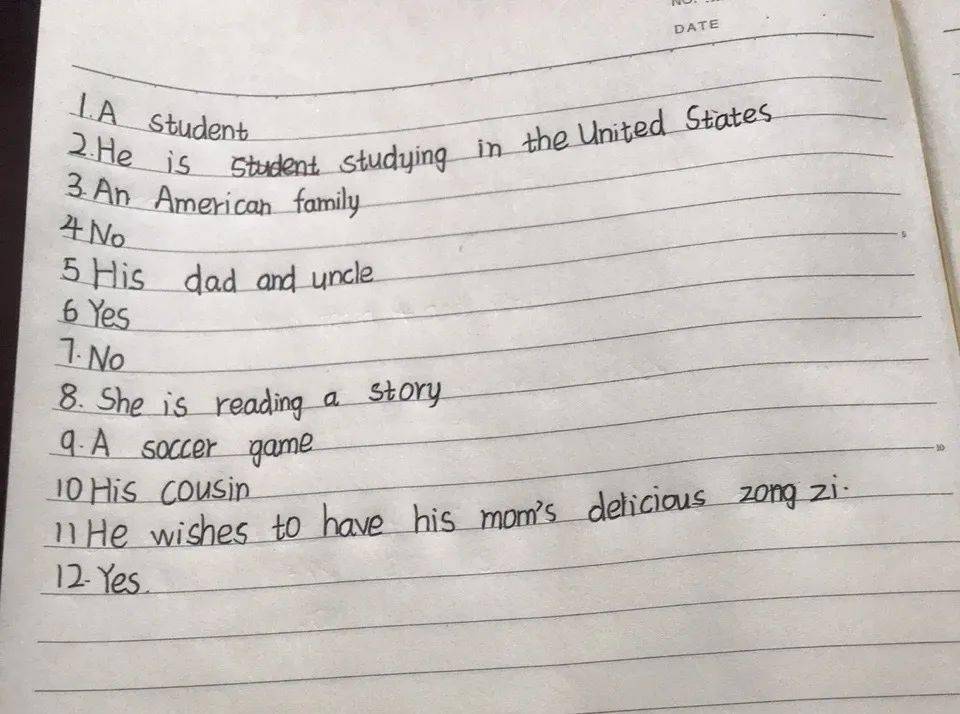 DATE
1. A student
2. He is student studying in the United States
3. An American family
4 No
5 His dad and uncle
6 Yes
7. No
8. She is reading a story
9. A soccer game
10 His cousin
11 He wishes to have his mom's delicious zong zi.
12. Yes.